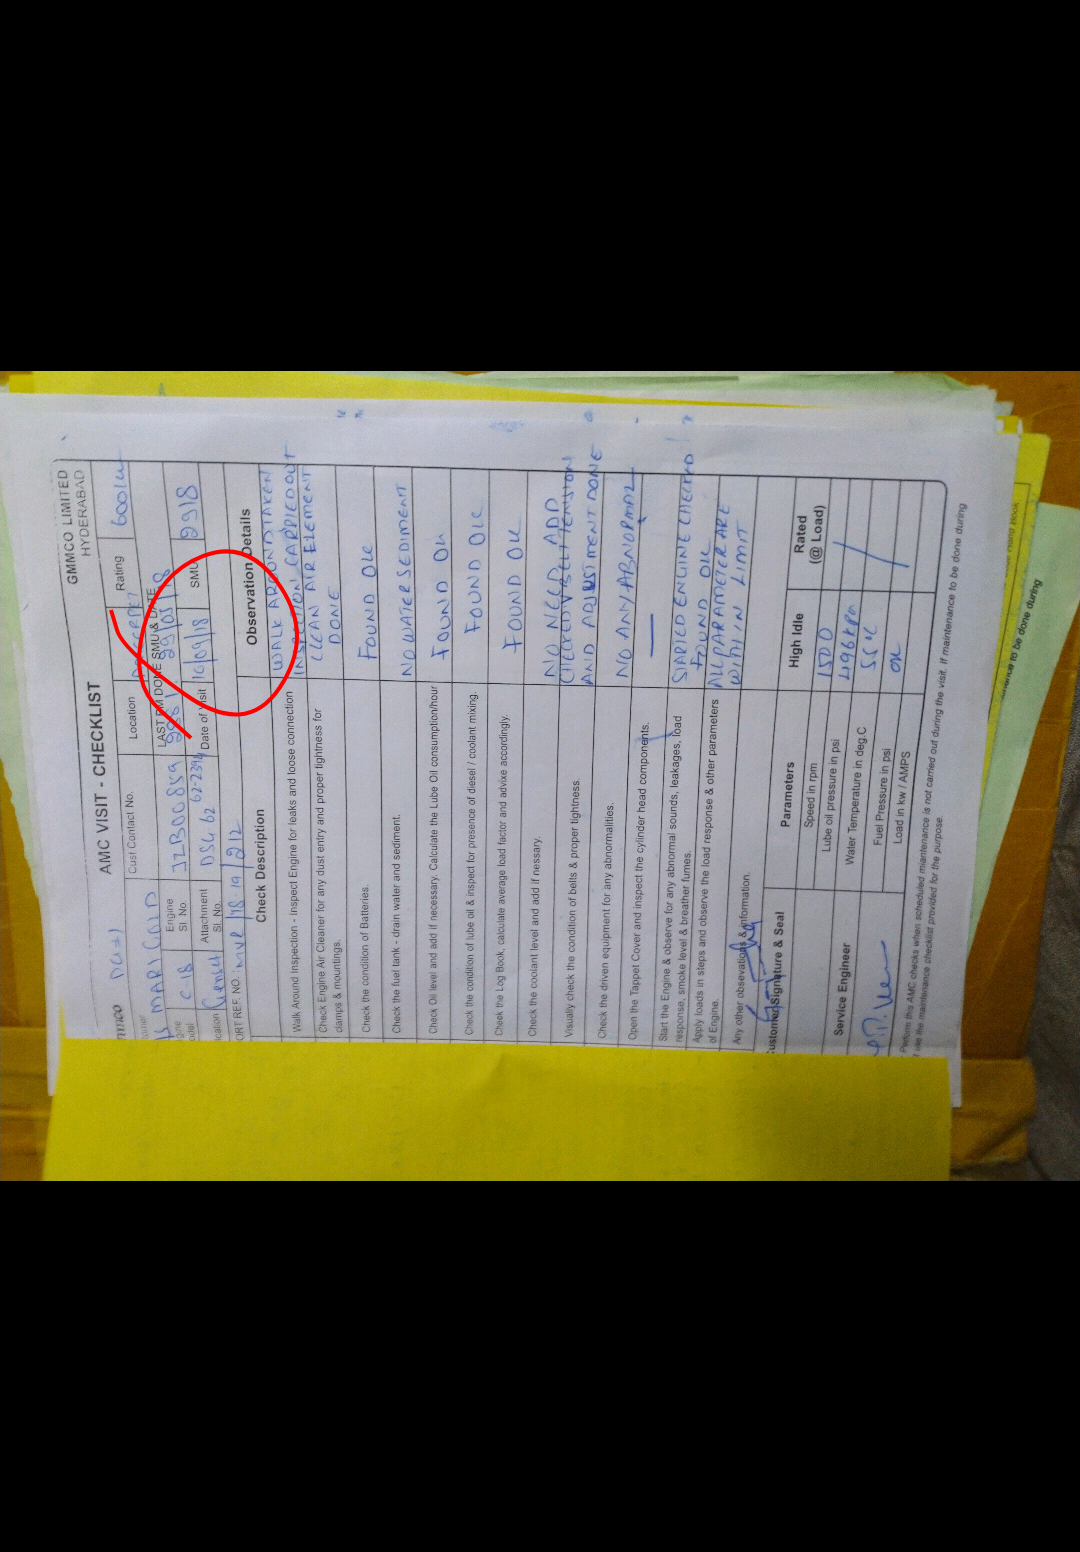 GMMCO LIMITED
HYDERABAD
AMC VISIT - CHECKLIST
Cust Contact No.
Location
Rating
MARIGOLD
Engine
Sl. No.
LAST PM DONE SMU & DATE
C18
Attachment
Sl. No.
DSG 62
62-2394
Date of Visit
10/09/18
SMU
2918
Genset
ORT REF. NO.
Check Description
Observation Details
Walk Around Inspection - Inspect Engine for leaks and loose connection
WALK AROUND TAKEN
INSPECTION CARRIED OUT
Check Engine Air Cleaner for any dust entry and proper tightness for
clamps & mountings.
CLEAN AIR ELEMENT
DONE
Check the condition of Batteries.
FOUND OK
Check the fuel tank - drain water and sediment.
NO WATER SEDIMENT
Check Oil level and add if necessary. Calculate the Lube Oil consumption/hour
FOUND OK
Check the condition of lube oil & inspect for presence of diesel / coolant mixing.
FOUND OK
Check the Log Book, calculate average load factor and advixe accordingly.
FOUND OK
Check the coolant level and add if nessary.
NO NEED ADD
Visually check the condition of belts & proper tightness.
CHECKED V BELT TENSION
AND ADJUSTMENT DONE
Check the driven equipment for any abnormalities.
NO ANY ABNORMAL
Open the Tappet Cover and inspect the cylinder head components.
Start the Engine & observe for any abnormal sounds, leakages, load
response, smoke level & breather fumes.
FOUND OK
Apply loads in steps and observe the load response & other parameters
of Engine.
ALL PARAMETER ARE
WITHIN LIMIT
Any other obsevations & information.
Customer Signature & Seal
Parameters
High Idle
Rated
(@ Load)
Speed in rpm
1500
Lube oil pressure in psi
496 kpa
Service Engineer
Water Temperature in deg.C
55°C
Fuel Pressure in psi
OK
Load in kw / AMPS
Perform this AMC checks when scheduled maintenance is not carried out during the visit. If maintenance to be done during
use the maintenance checklist provided for the purpose.
to be done during